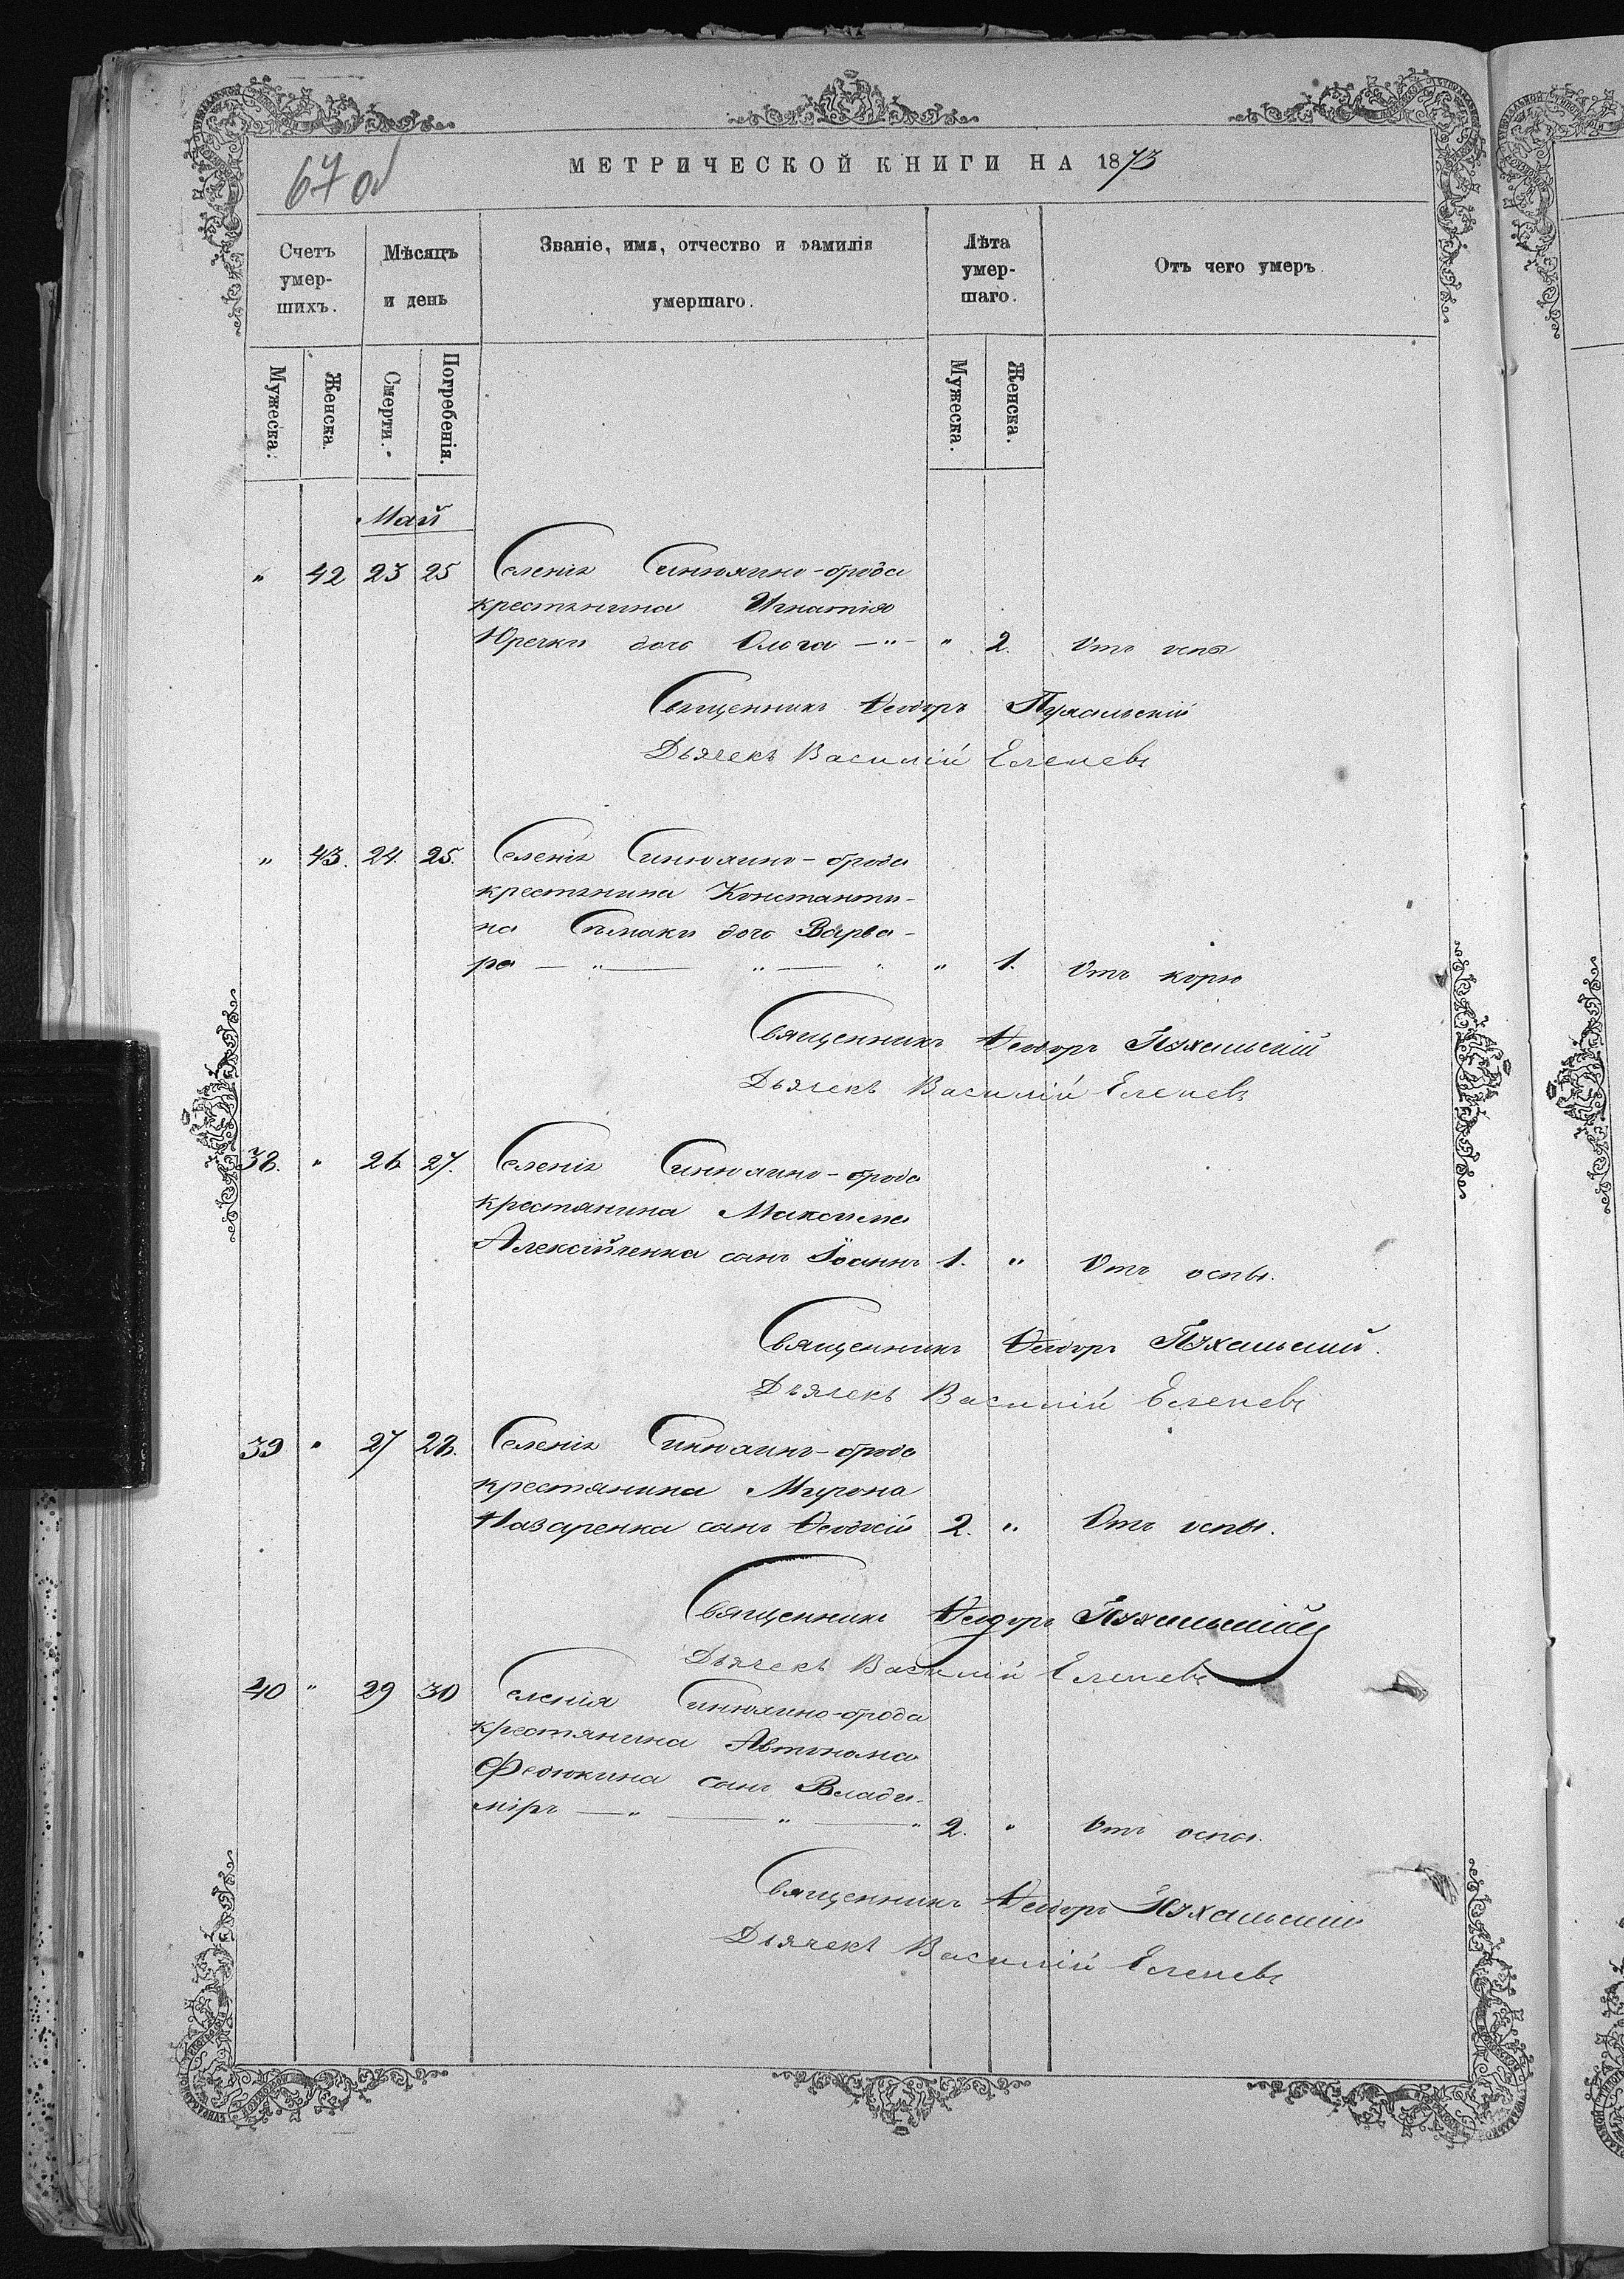 67 об
МЕТРИЧЕСКОЙ КНИГИ НА 1873
Счетъ умер-шихъ.
Мѣсяцъ и день
Званіе, имя, отчество и фамилія умершаго.
Лѣта умер-шаго.
Отъ чего умеръ.
Мужеска.
Женска.
Смерти.
Погребенія.
Мужеска.
Женска.
Май
" 42 23 25 Селенія Синюхино-брода
крестянина Игнатія
Юречки дочь Ольга — " — " 2. Отъ оспы
Священникъ Ѳеодоръ Пухальскій
Дьячекъ Василій Еленевъ
" 43. 24. 25. Селенія Синюхино-брода
крестянина Константи-
на дочь Варва-
ра — " — " — " " 1. Отъ корю
Священникъ Ѳеодоръ Пухальскій
Дьячекъ Василій Еленевъ
38. " 26 27. Селенія Синюхино-брода
крестянина Максима
Алексійченка сынъ Іоаннъ 1. " Отъ оспы.
Священникъ Ѳеодоръ Пухальскій.
Дьячекъ Василій Еленевъ
39 " 27 28. Селенія Синюхино-брода
крестянина Мирона
Назаренка сынъ Ѳеодосій 2. " Отъ оспы.
Священникъ Ѳеодоръ Пухальскій
Дьячекъ Василій Еленевъ
40 " 29 30 Селенія Синюхино-брода
крестянина Автонома
Федюкина сынъ Влади-
міръ — " — " — " 2. " Отъ оспы.
Священникъ Ѳеодоръ Пухальскій
Дьячекъ Василій Еленевъ